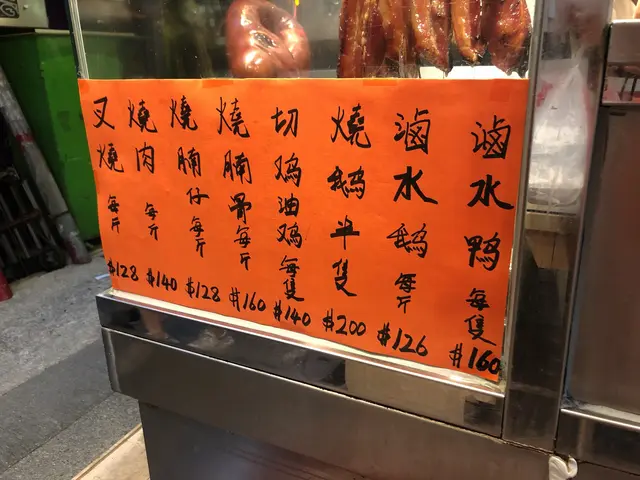 滷水鴨每隻$160
滷水鵝每斤$126
燒鵝半隻$200
切鸡油鸡每隻$140
燒腩骨每斤$160
燒腩仔每斤$128
燒肉每斤$140
叉燒每斤$128